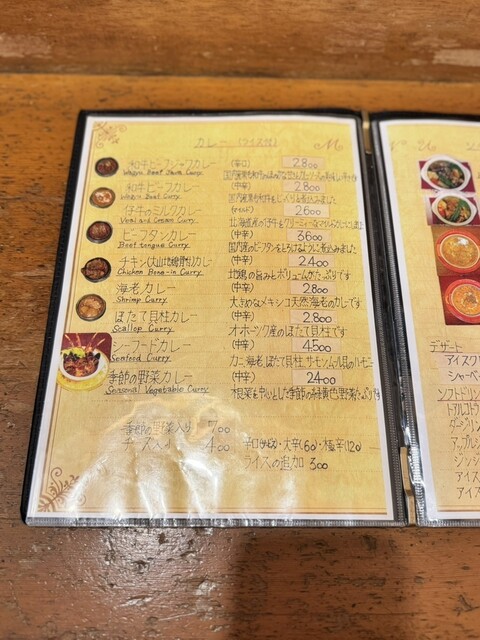 カレー（ライス付）
和牛ビーフジャワカレー (辛口) 2800
Wagyu Beef Java Curry
和牛ビーフカレー (中辛) 2800
Wagyu Beef Curry
仔牛のミルクカレー (マイルド) 2600
Veal and Cream Curry
ビーフタンカレー (中辛) 3600
Beef tongue Curry 国内産のビーフタンをとろけるように煮込みました
チキン(大山地鶏骨付)カレー (中辛) 2400
Chicken Bone-in Curry 地鶏の旨みとボリュームがたっぷりです
海老カレー (中辛) 2800
Shrimp Curry 大きめなメキシコ天然海老のカレーです
ほたて貝柱カレー (中辛) 2,800
Scallop Curry オホーツク産のほたて貝柱です
シーフードカレー (中辛) 4,500
Seafood Curry カニ,海老,ほたて貝柱,サーモン
季節の野菜カレー (中辛) 2400
Seasonal Vegetable Curry 根菜を中心とした季節の緑黄色野菜たっぷり
季節の野菜入り 700
チーズ入り 400
辛口 ・大辛(60)・極辛(120)
ライスの追加 300
M N U
デザート
アイスク
シャーベ
ソフトドリン
アイス
アイス